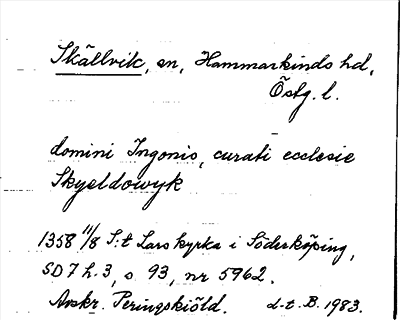 Skällvik, sn, Hammarkinds hd,
Östg. l.
domini Ingonis, curati ecclesie
Skyeldowyk
1358 11/8 S:t Lars kyrka i Söderköping,
SD 7 h. 3, s. 93, nr 5962.
Avskr. Peringskiöld. d-t. B. 1983.